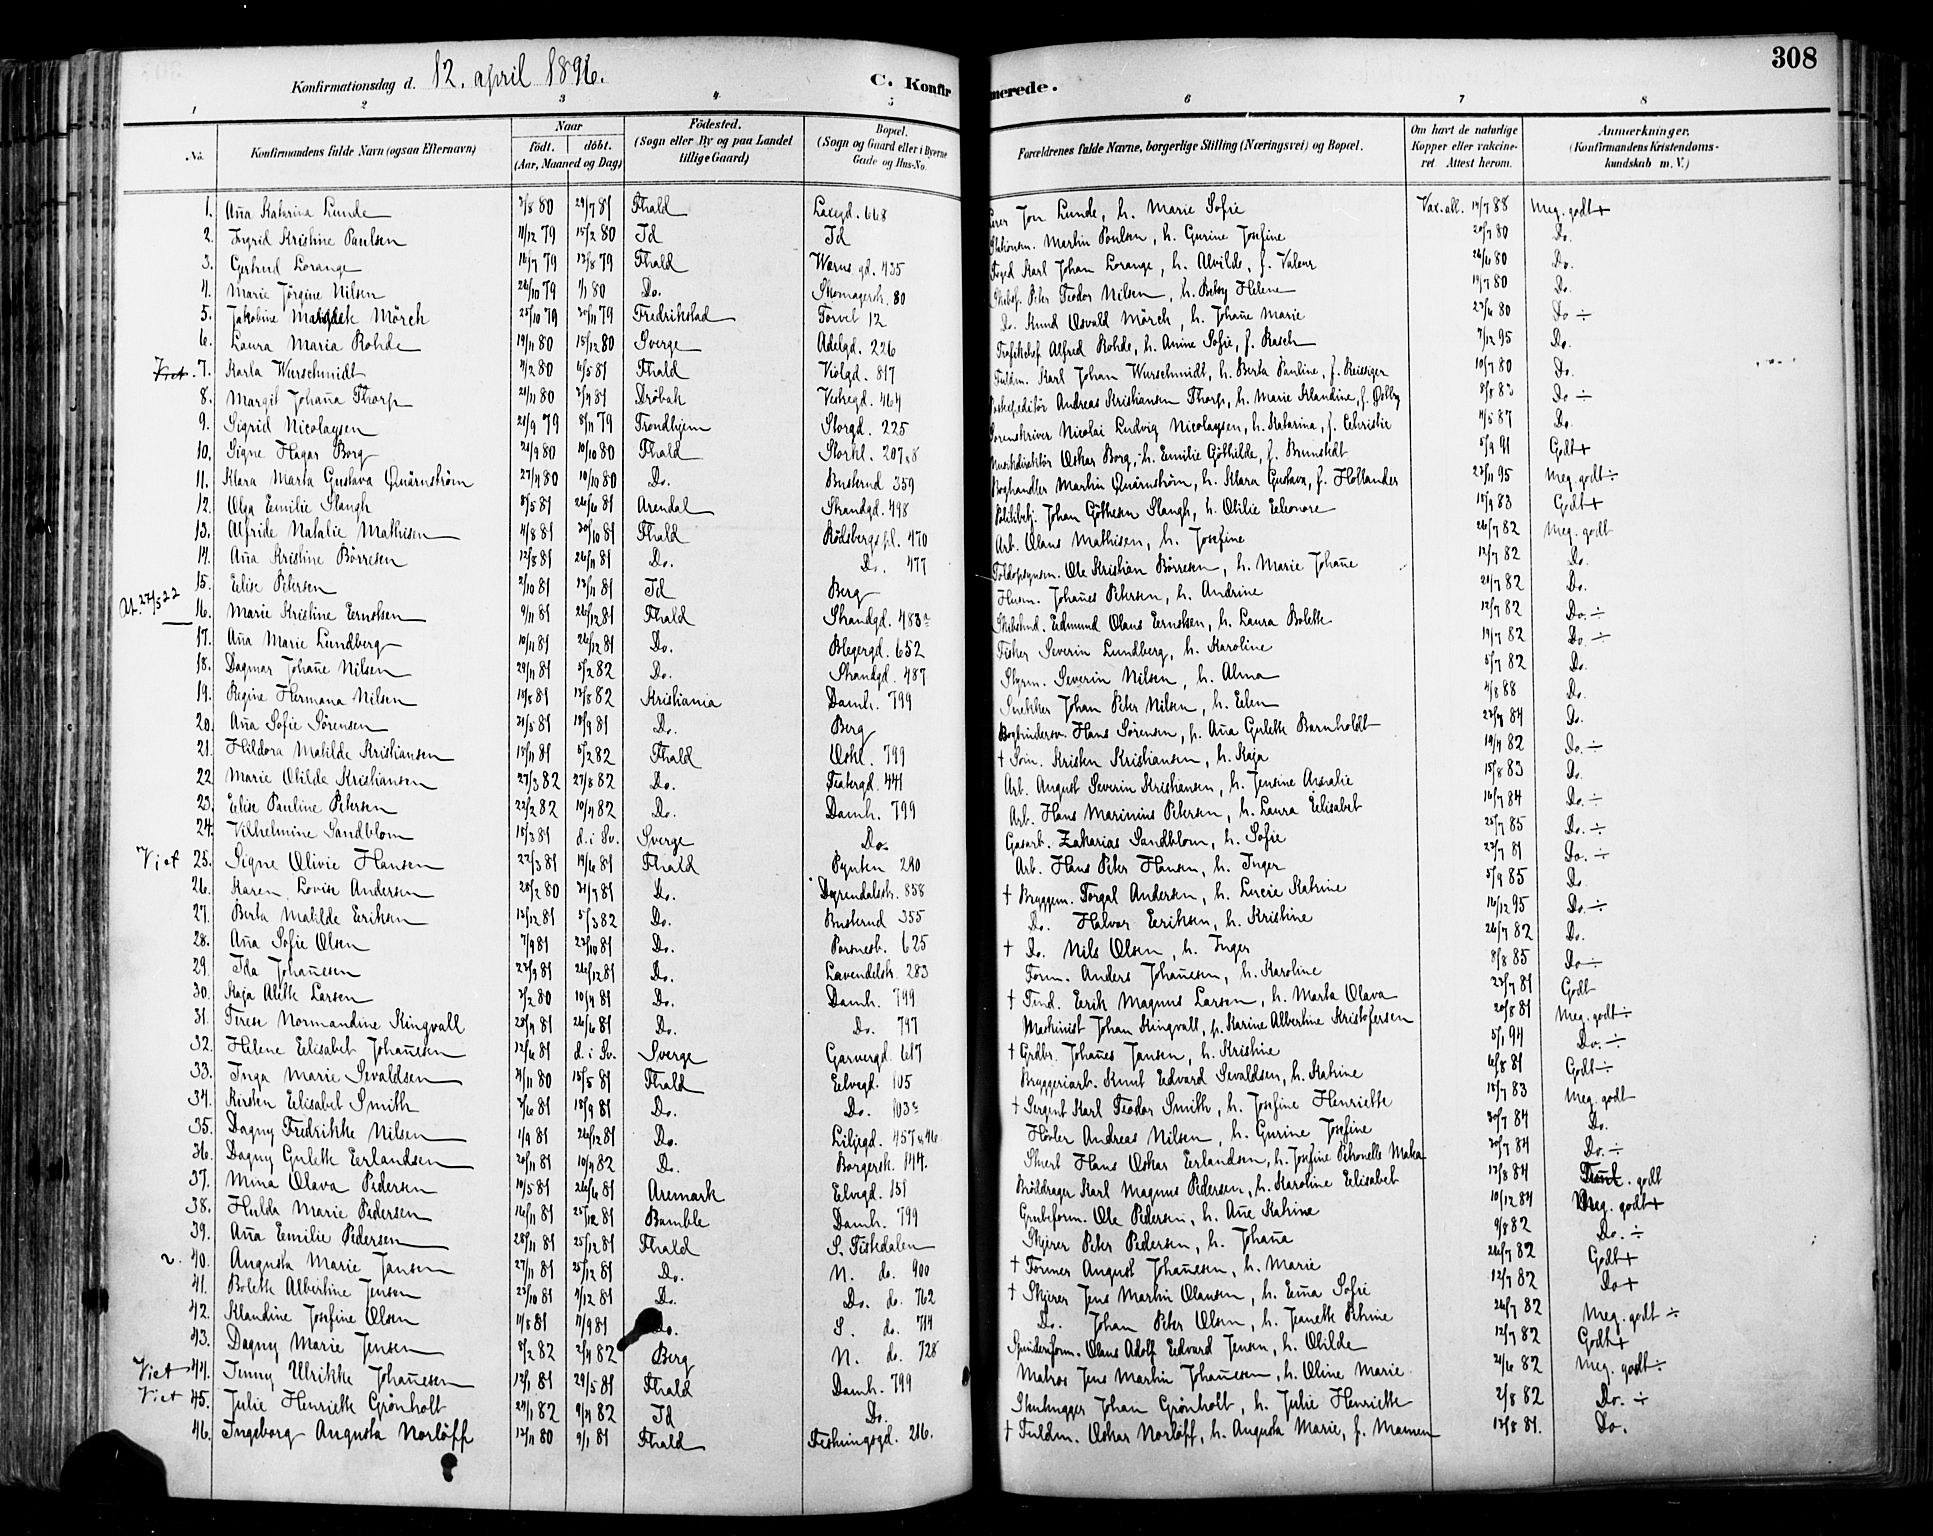 308
Konfirmationsdag d. 12. april 1896.
C. Konfirmerede.
1 2 3 4 5 6 7 8
No. Konfirmandens fulde Navn (ogsaa Efternavn) Naar födt. döbt. (Aar, Maaned og Dag) Födested. (Sogn eller By og paa Landet tillige Gaard) Bopæl. (Sogn og Gaard eller i Byerne Gade og Hus-No. Forældrenes fulde Navne, borgerlige Stilling (Næringsvei) og Bopæl. Om havt de naturlige Kopper eller vakcineret. Attest herom. Anmærkninger. (Konfirmandens Kristendomskundskab m. V.)
1. Aña Katrina Lunde 3/8 80 29/7 81 Fhald 668 Jon Lunde, h. Marie Sofie Vax. att. 14/7 88 Meg. godt +
2. Ingrid Kristine Paulsen 11/12 79 15/2 80 Id Id Martin Poulsen, h. Gurine Josefine 20/7 80 Do.
3. Gertrud Lorange 16/7 79 12/8 79 Fhald Wærns gd. 435 Foged Karl Johan Lorange, h. Alvilde, f. Valeur 26/6 80 Do.
4. Marie Jörgine Nilsen 26/10 79 1/1 80 Do. 80 Peter Teodor Nilsen, h. Betsy Helene 14/7 80 Do.
5. Jakobine Mörch 25/10 79 30/11 79 Fredrikstad Torvet 12 Do. Knud Osvald Mörch, h. Johañe Marie 23/6 80 Do ÷
6. Laura Maria Rohde 19/11 80 15/12 80 Sverge Adelgd. 226 Trafikchef Alfred Rohde, h. Anine Sofie, f. Rasch 7/12 95 Do.
Viet. 7. Karla Wurschmidt 4/2 80 6/5 81 Fhald Violgd. 817 Fuldm. Karl Johan Wurschmidt, h. Berta Pauline, f. Reissiger 10/7 80 Do.
8. Margit Johaña Thorp 21/11 80 3/4 81 Dröbak Vestregd. 464 Postexpeditör Andreas Kristiansen Thorp, h. Marie Klandine, f. Dölby 8/8 83 Do ÷
9. Sigrid Nicolaysen 21/9 79 8/11 79 Trondhjem Storgd. 225 Sorenskriver Nicolai Ludvig Nicolaysen, h. Katarina, f. Christie 4/5 87 Do.
10. Signe Hagar Borg 21/9 80 10/10 80 Fhald Stortv. 207, 8 Musikdirektör Oskar Borg, h. Emilie Göthilde, f. Brunstedt 5/9 91 Godt +
11. Klara Marta Gustava Quärnström 27/4 80 10/10 80 Do. Buskrud 359 Boghandler Martin Quärnström, h. Klara Gustava, f. Hollander 23/11 95 Meg. godt ÷
12. Olga Emilie Slangh 8/5 81 26/6 81 Arendal Strandgd. 498 Johan Göthesen Slangh, h. Otilie Eleonore 18/9 83 Godt +
13. Alfride Natalie Mathisen 4/8 81 30/10 81 Fhald Rödsbergspl. 470 Arb. Olaus Mathisen, h. Josefine 26/7 82 Meg. godt
14. Aña Kristine Börresen 12/8 81 26/11 81 Do. Do. 477 Toldopsynsm. Ole Kristian Börresen, h. Marie Johañe 12/7 82 Do.
15. Elise Petersen 2/10 81 13/11 81 Id Berg Husm. Johañes Petersen, h. Andrine 21/7 82 Do.
At. 27/5 22 16. Marie Kristine Ernstsen 9/11 81 26/12 81 Fhald Strandgd. 483a Skibstmd. Edmund Olaus Ernstsen, h. Laura Bolette 12/7 82 Do. ÷
17. Aña Marie Lundberg 10/11 81 26/12 81 Do. Blegergd. 652 Fisker Severin Lundberg, h. Karoline 19/7 82 Do. ÷
18. Dagmar Johañe Nilsen 29/11 81 5/2 82 Do. Strandgd. 487 Styrm. Severin Nilsen, h. Alma 5/7 82 Do.
19. Regine Hermana Nilsen 14/5 81 13/8 82 Kristiania Damh. 799 Snekker Johan Peter Nilsen, h. Elen 4/8 88 Do.
20. Aña Sofie Sörensen 21/5 81 18/9 81 Do. Berg Bogbindersv. Hans Sörensen, p. Aña Gulette Barnholdt 23/8 84 Do.
21. Hildora Matilde Kristiansen 15/11 81 5/2 82 Fhald Östk. 799 † Kristen Kristiansen, h. Kaja 19/4 82 Do. ÷
22 Marie Otilde Kristiansen 27/3 82 27/8 82 Do. Teatergd. 441 Arb. August Severin Kristiansen, h. Jensine Amalie 15/8 83 Do.
23. Elise Pauline Petersen 22/2 82 10/4 82 Do. Damh. 799 Arb. Hans Marinius Petersen, h. Laura Elisabet 16/7 84 Do. ÷
24. Vilhelmine Sandblom 15/3 81 d. i Sv. Sverge Do. Gasarb. Zakarias Sandblom, h. Sofie 25/7 85 Do. ÷
Viet 25. Signe Olivie Hansen 22/3 81 19/6 81 Fhald Pynten 290 Arb. Hans Peter Hansen, h. Inger 23/7 81 Do. ÷
26. Karen Lovise Andersen 28/2 80 31/7 81 Do. Dyrendalstr. 858 † Bryggem. Torgal Andersen, h. Lucie Katrine 5/9 85 Do
27. Berta Matilde Eriksen 13/12 81 5/3 82 Do. Buskrud 355 Do. Halvor Eriksen, h. Kristine 16/12 95 Do. ÷
28. Aña Sofie Olsen 7/9 81 23/10 81 Do. 625 † Do. Nils Olsen, h. Inger 26/7 82 Do.
29. Ida Johañesen 23/9 81 26/12 81 Do. Lavendelstr. 283 Form. Anders Johañesen, h. Karoline 8/8 85 Do ÷
30. Kaja Alette Larsen 3/2 80 10/4 81 Do. Damh. 799 † Erik Magnus Larsen, h. Marta Olava 23/7 81 Godt
31. Terese Normandine Kingvall 28/4 81 26/6 81 Do. Do. 797 Maskinist Johan Kingvall, p. Karine Albertine Kristofersen 20/8 81 Meg. godt ÷
32. Helene Elisabet Johañesen 12/6 81 d. i Sv. Sverge Garvergd. 617 † Grdbr. Johañes Jansen, h. Kristine 5/1 94 Do. ÷
33. Inga Marie Sevaldsen 4/11 80 15/5 81 Fhald Elvegd. 105 Bryggeriarb. Knut Edvard Sevaldsen, h. Katrine 6/8 81 Godt ÷
34. Kirsten Elisabet Smith 3/6 81 18/9 81 Do. Do. 103a † Sergent Karl Teodor Smith, h. Josefine Henriette 18/7 83 Meg. godt
35. Dagny Fredrikke Nilsen 1/9 81 26/12 81 Do. Liljegd. 457, 46 Hövler Andreas Nilsen, h. Gurine Josefine 30/7 84 Do.
36. Dagny Gulette Erlandsen 20/11 81 10/4 82 Do. Borgersk. 144. Hans Oskar Erlandsen, h. Josefine Petronelle 30/7 84 Do. ÷
37. Mina Olava Pedersen 10/5 81 26/6 81 Aremark Elvegd. 151 Karl Magnus Pedersen, h. Karoline Elisabet 13/8 84 godt
38. Hulda Marie Pedersen 16/11 81 25/12 81 Bamble Damh. 799 Grubeform. Ole Pedersen, h. Añe Katrine 10/12 84 Meg. godt +
39. Aña Emilie Pedersen 28/11 81 25/12 81 Fhald S. Tistedalen Skjærer Peter Pedersen, h. Johaña 9/8 82 Do. ÷
v. 40. Augusta Marie Jansen 27/11 81 25/12 81 Do. N. do. 900 † Tömmer August Johañesen, h. Marie 26/7 82 Godt +
41. Bolette Albertine Jensen 23/10 81 4/12 81 Do. Do. do. 762 † Skjærer Jens Martin Olausen, h. Eñna Sofie 12/7 82 Do +
42. Klandine Josefine Olsen 11/8 81 11/9 81 Do. S. do. 714 Do. Johan Peter Olsen, h. Jeanette Petrine 26/7 82 Meg. godt ÷
43. Dagny Marie Jensen 8/2 82 2/4 82 Berg N. do. 728 Spinderiform. Olaus Adolf Edvard Jensen, h. Otilde 12/7 82 Godt +
Viet 44. Jenny Ulrikke Johañesen 12/1 81 29/5 81 Fhald Damh. 799 Matros Jens Martin Johañesen, h. Oline Marie 21/6 82 Meg. godt ÷
Viet 45. Julie Henriette Grönholt 24/1 82 9/4 82 Id Do. Stenhugger Johan Grönholt, h. Julie Henriette 2/8 82 Do. ÷
46. Ingeborg Augusta Norlöff 12/11 80 9/1 81 Fhald Festningsgd. 216. † Fuldm. Oskar Norlöff, h. Augusta Marie, f. Mamen 13/8 81. Do.